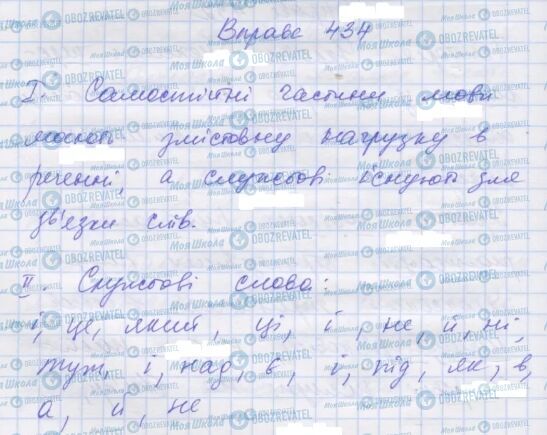 Вправа 434
I Самостійні частини мови
мають змістовну нагрузку в
реченні, а службові існують для
зв'язки слів.
II. Службові слова:
і, це, який, ці, і, не, й, ні,
тут, і, над, в, і, під, як, в,
а, й, не